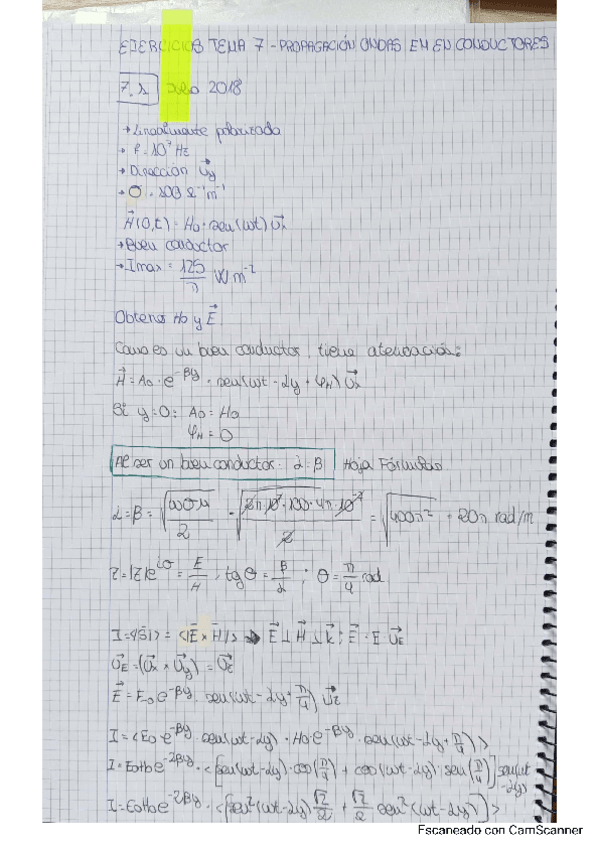 EJERCICIOS TEMA 7 - PROPAGACIÓN ONDAS EM EN CONDUCTORES
7.1 2018
→ Linealmente polarizada
→ f = 10⁷ Hz
→ Dirección u⃗y
→ σ = 100 Ω⁻¹m⁻¹
H⃗(0,t) = H₀ · sen(ωt) u⃗x
→ Buen conductor
→ Imax = 125/π W m⁻²
Obtener H₀ y E⃗
Como es un buen conductor, tiene atenuación:
H⃗ = A₀ · e^-βy · sen(ωt - αy + φH) u⃗x
Si y = 0: A₀ = H₀
φH = 0
Al ser un buen conductor: α = β Hoja Fórmulas
α = β = √(ωσμ/2) = √(2π·10⁷·100·4π·10⁻⁷/2) = √(400π²) = 20π rad/m
Z = |Z|e^iθ = E/H ; tg θ = β/α ; θ = π/4 rad
I = <|S⃗|> = <|E⃗ × H⃗|> → E⃗ ⊥ H⃗ ⊥ k⃗ ; E⃗ = E · u⃗E
u⃗E = (u⃗x × u⃗y) = u⃗z
E⃗ = E₀ e^-βy · sen(ωt - αy + π/4) u⃗z
I = <E₀ e^-βy · sen(ωt - αy) · H₀ · e^-βy · sen(ωt - αy + π/4)>
I = E₀H₀ e^-2βy · <[sen(ωt - αy) · cos(π/4) + cos(ωt - αy) · sen(π/4)] sen(ωt - αy)>
I = E₀H₀ e^-2βy · <[sen²(ωt - αy) √2/2 + √2/2 sen²(ωt - αy)]>
Escaneado con CamScanner